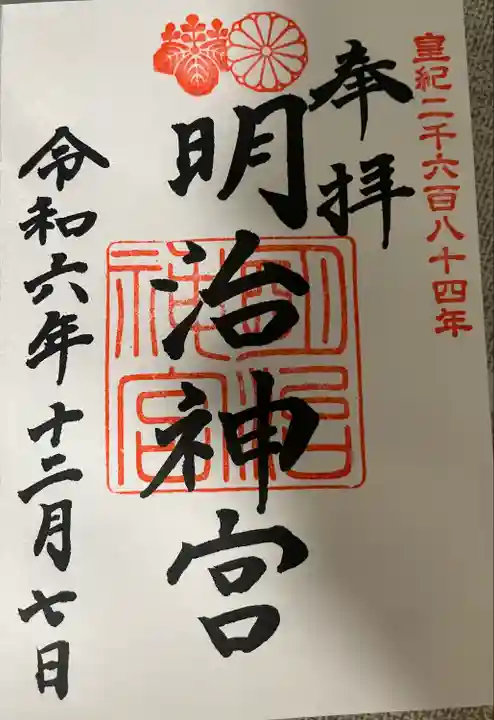 皇紀二千六百八十四年
奉拝
明治神宮
明治神宮
令和六年十二月七日